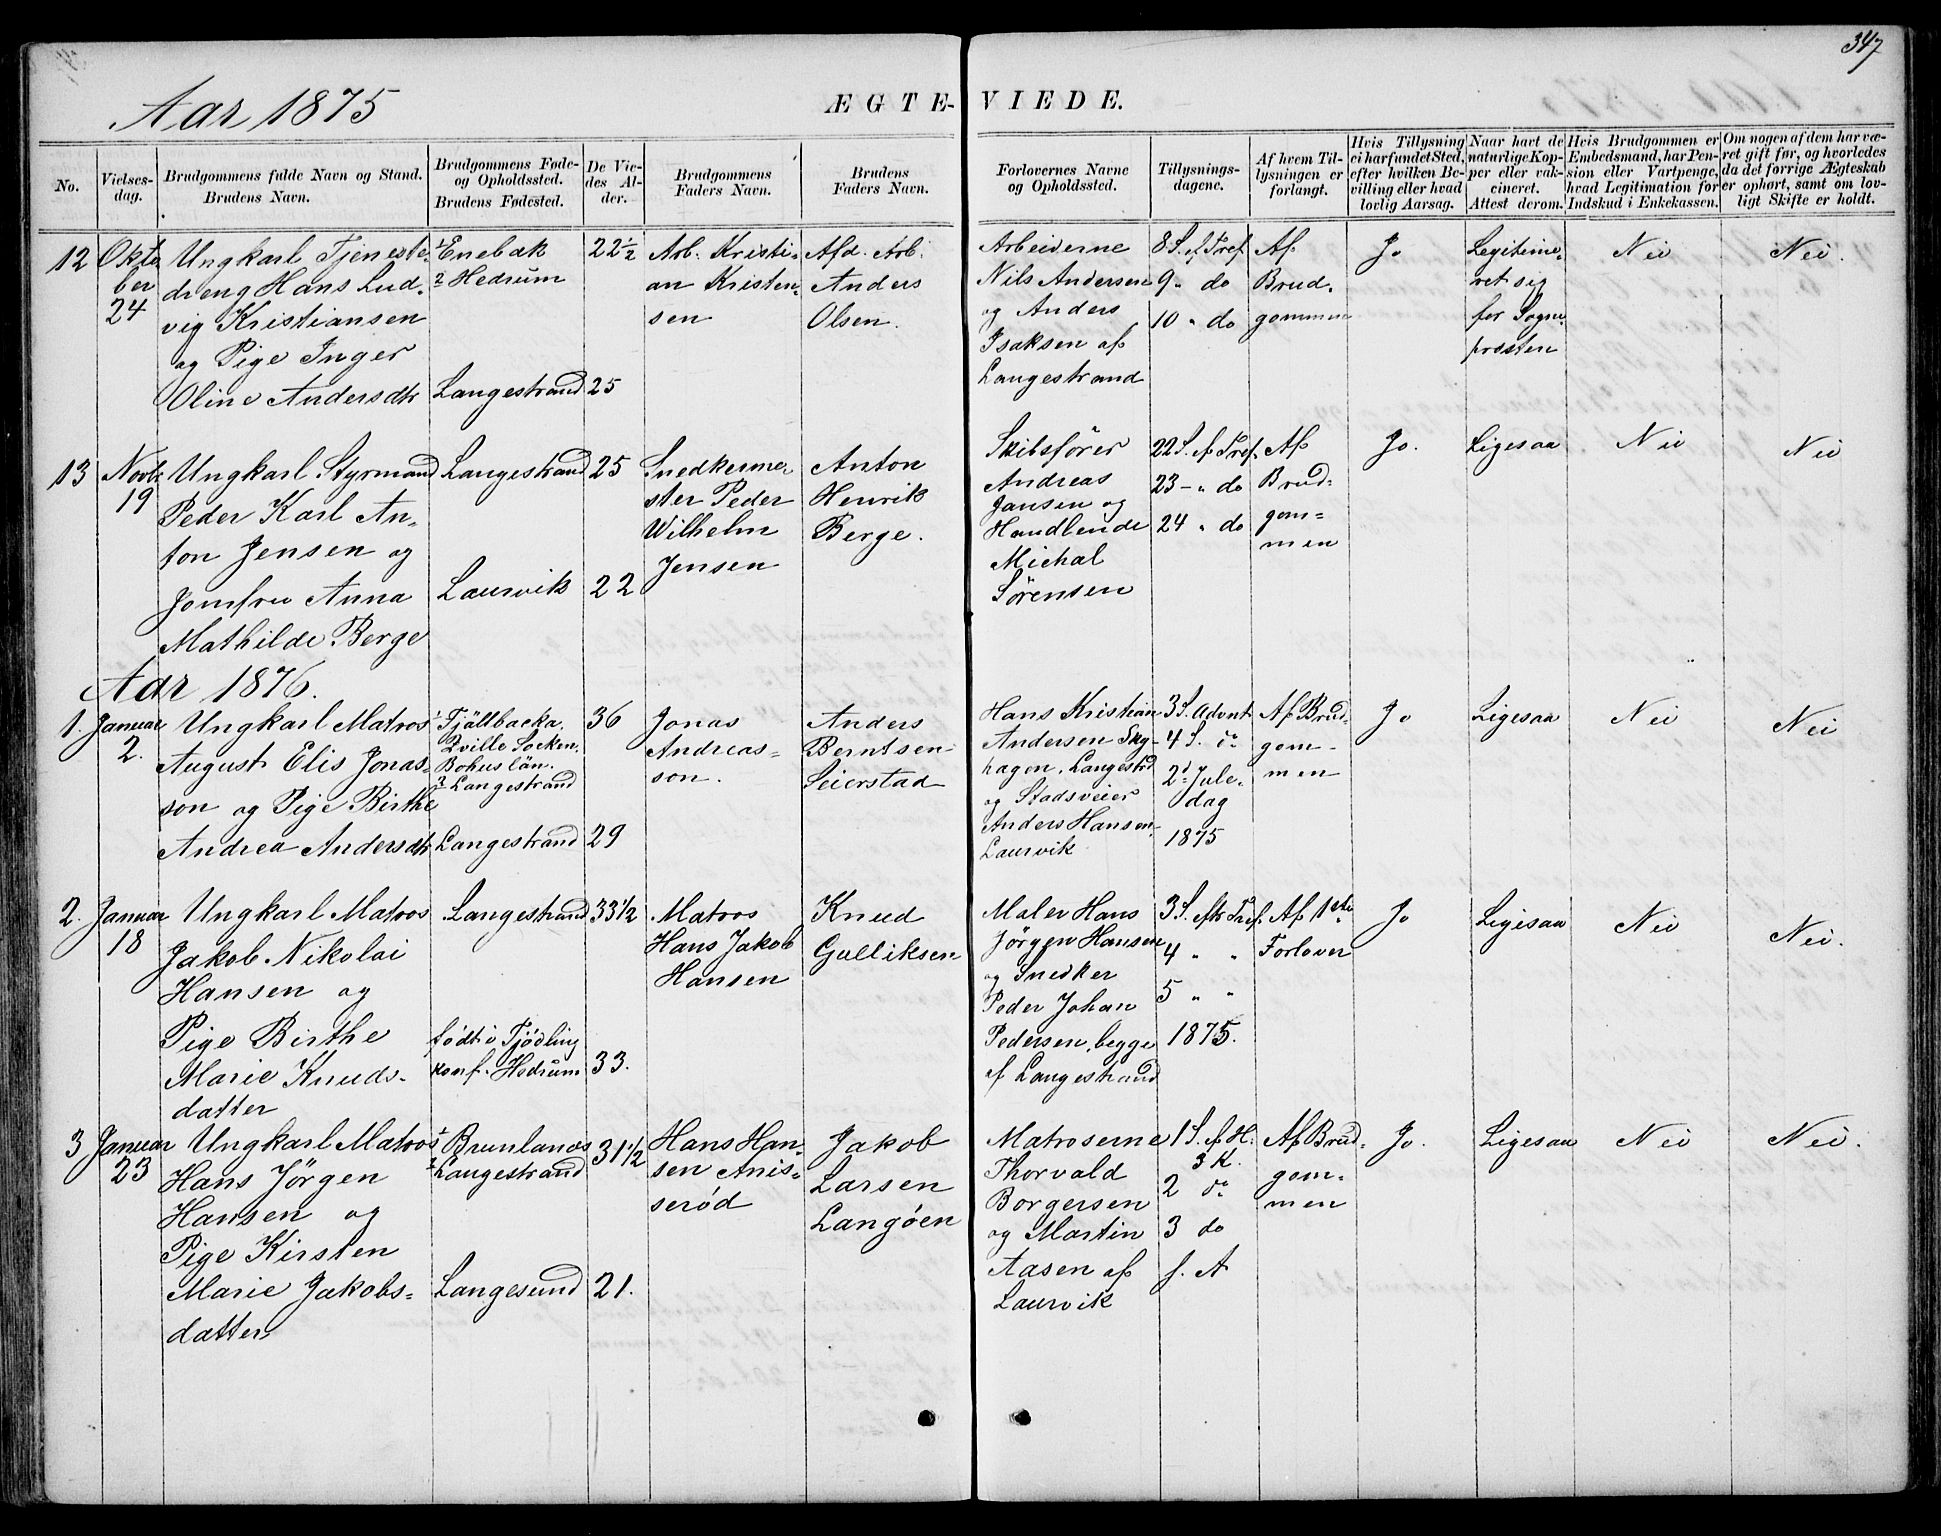 347
Aar 1875
ÆGTE-VIEDE.
No.
Vielses-
dag.
Brudgommens fulde Navn og Stand.
Brudens Navn.
Brudgommens Føde-
og Opholdssted.
Brudens Fødested.
De Vie-
des Al-
der.
Brudgommens
Faders Navn.
Brudens
Faders Navn.
Forlovernes Navne
og Opholdssted.
Tillysnings-
dagene.
Af hvem Til-
lysningen er
forlangt.
Hvis Tillysning
ei har fundet Sted,
efter hvilken Be-
villing eller hvad
lovlig Aarsag.
Naar havt de
naturlige Kop-
per eller vak-
cineret.
Attest derom.
Hvis Brudgommen er
Embedsmand, har Pen-
sion eller Vartpenge,
hvad Legitimation for
Indskud i Enkekassen.
Om nogen af dem har væ-
ret gift før, og hvorledes
da det forrige Ægteskab
er ophørt, samt om lov-
ligt Skifte er holdt.
12
Okto
ber
24
Ungkarl Tjeneste-
dreng Hans Lud-
vig Kristiansen
og Pige Inger
Oline Andersdtr
1 Enebak
2 Hedrum
Langestrand
22½
25
Arb. Kristi-
an Kristen-
sen
Afd. Arb.
Anders
Olsen.
Arbeiderne
Nils Andersen
og Anders
Isaksen af
Langestrand
8 S. ef Tref.
9 " do
10 " do
Af
Brud-
gommen
Jo
Legitime-
ret sig
for Sogne-
presten
Nei
Nei.
13
Novbr
19
Ungkarl Styrmand
Peder Karl An-
ton Jensen og
Jomfru Anna
Mathilde Berge
Langestrand
Laurvik
25
22
Snedkerme
ster Peder
Wilhelm
Jensen
Anton
Henrik
Berge.
Skibsfører
Andreas
Jansen og
Handlende
Michal
Sørensen
22 S. ef Tref.
23 - " do
24 " do
Af
Brud-
gom=
men
Jo.
Ligesaa
Nei
Nei
Aar 1876.
1.
Januar
2.
Ungkarl Matros
August Elis Jonas-
son og Pige Birthe
Andrea Andersdtr
1 Fjällbacka,
Qville Socken,
Bohuslän.
2 Langestrand
Langestrand
36
29
Jonas
Andreas-
son.
Anders
Berntsen
Seierstad
Hans Kristian
Andersen Sky-
hagen, Langestrd
og Stadsveier
Anders Hansen,
Laurvik
3 S. Advnt
4 S. do
2d Jule-
dag
1875
Af Brud-
gom-
men
Jo
Ligesaa
Nei
Nei
2.
Januar
18
Ungkarl Matros
Jakob Nikolai
Hansen og
Pige Birthe
Marie Knuds-
datter
Langestrand
født i Tjødling
konf. Hedrum
33½
33.
Matros
Hans Jakob
Hansen
Knud
Gulliksen
Maler Hans
Jörgen Hansen
og Snedker
Peder Johan
Pedersen, begge
af Langestrand
3 S. eftr Tref.
4 " "
5 " "
1875.
Af 1ste
Forlover
Jo
Ligesaa
Nei
Nei.
3
Januar
23
Ungkarl Matros
Hans Jörgen
Hansen og
Pige Kirsten
Marie Jakobs-
datter
1 Brunlanæs
2 Langestrand
Langesund
31½
21.
Hans Han-
sen Anis-
serød
Jakob
Larsen
Langøen
Matroserne
Thorvald
Borgersen
og Martin
Aasen af
Laurvik
1 S. ef H.
3 K.
2 do
3 do
f. A
Af Brud-
gom-
men
Jo.
Ligesaa
Nei
Nei.